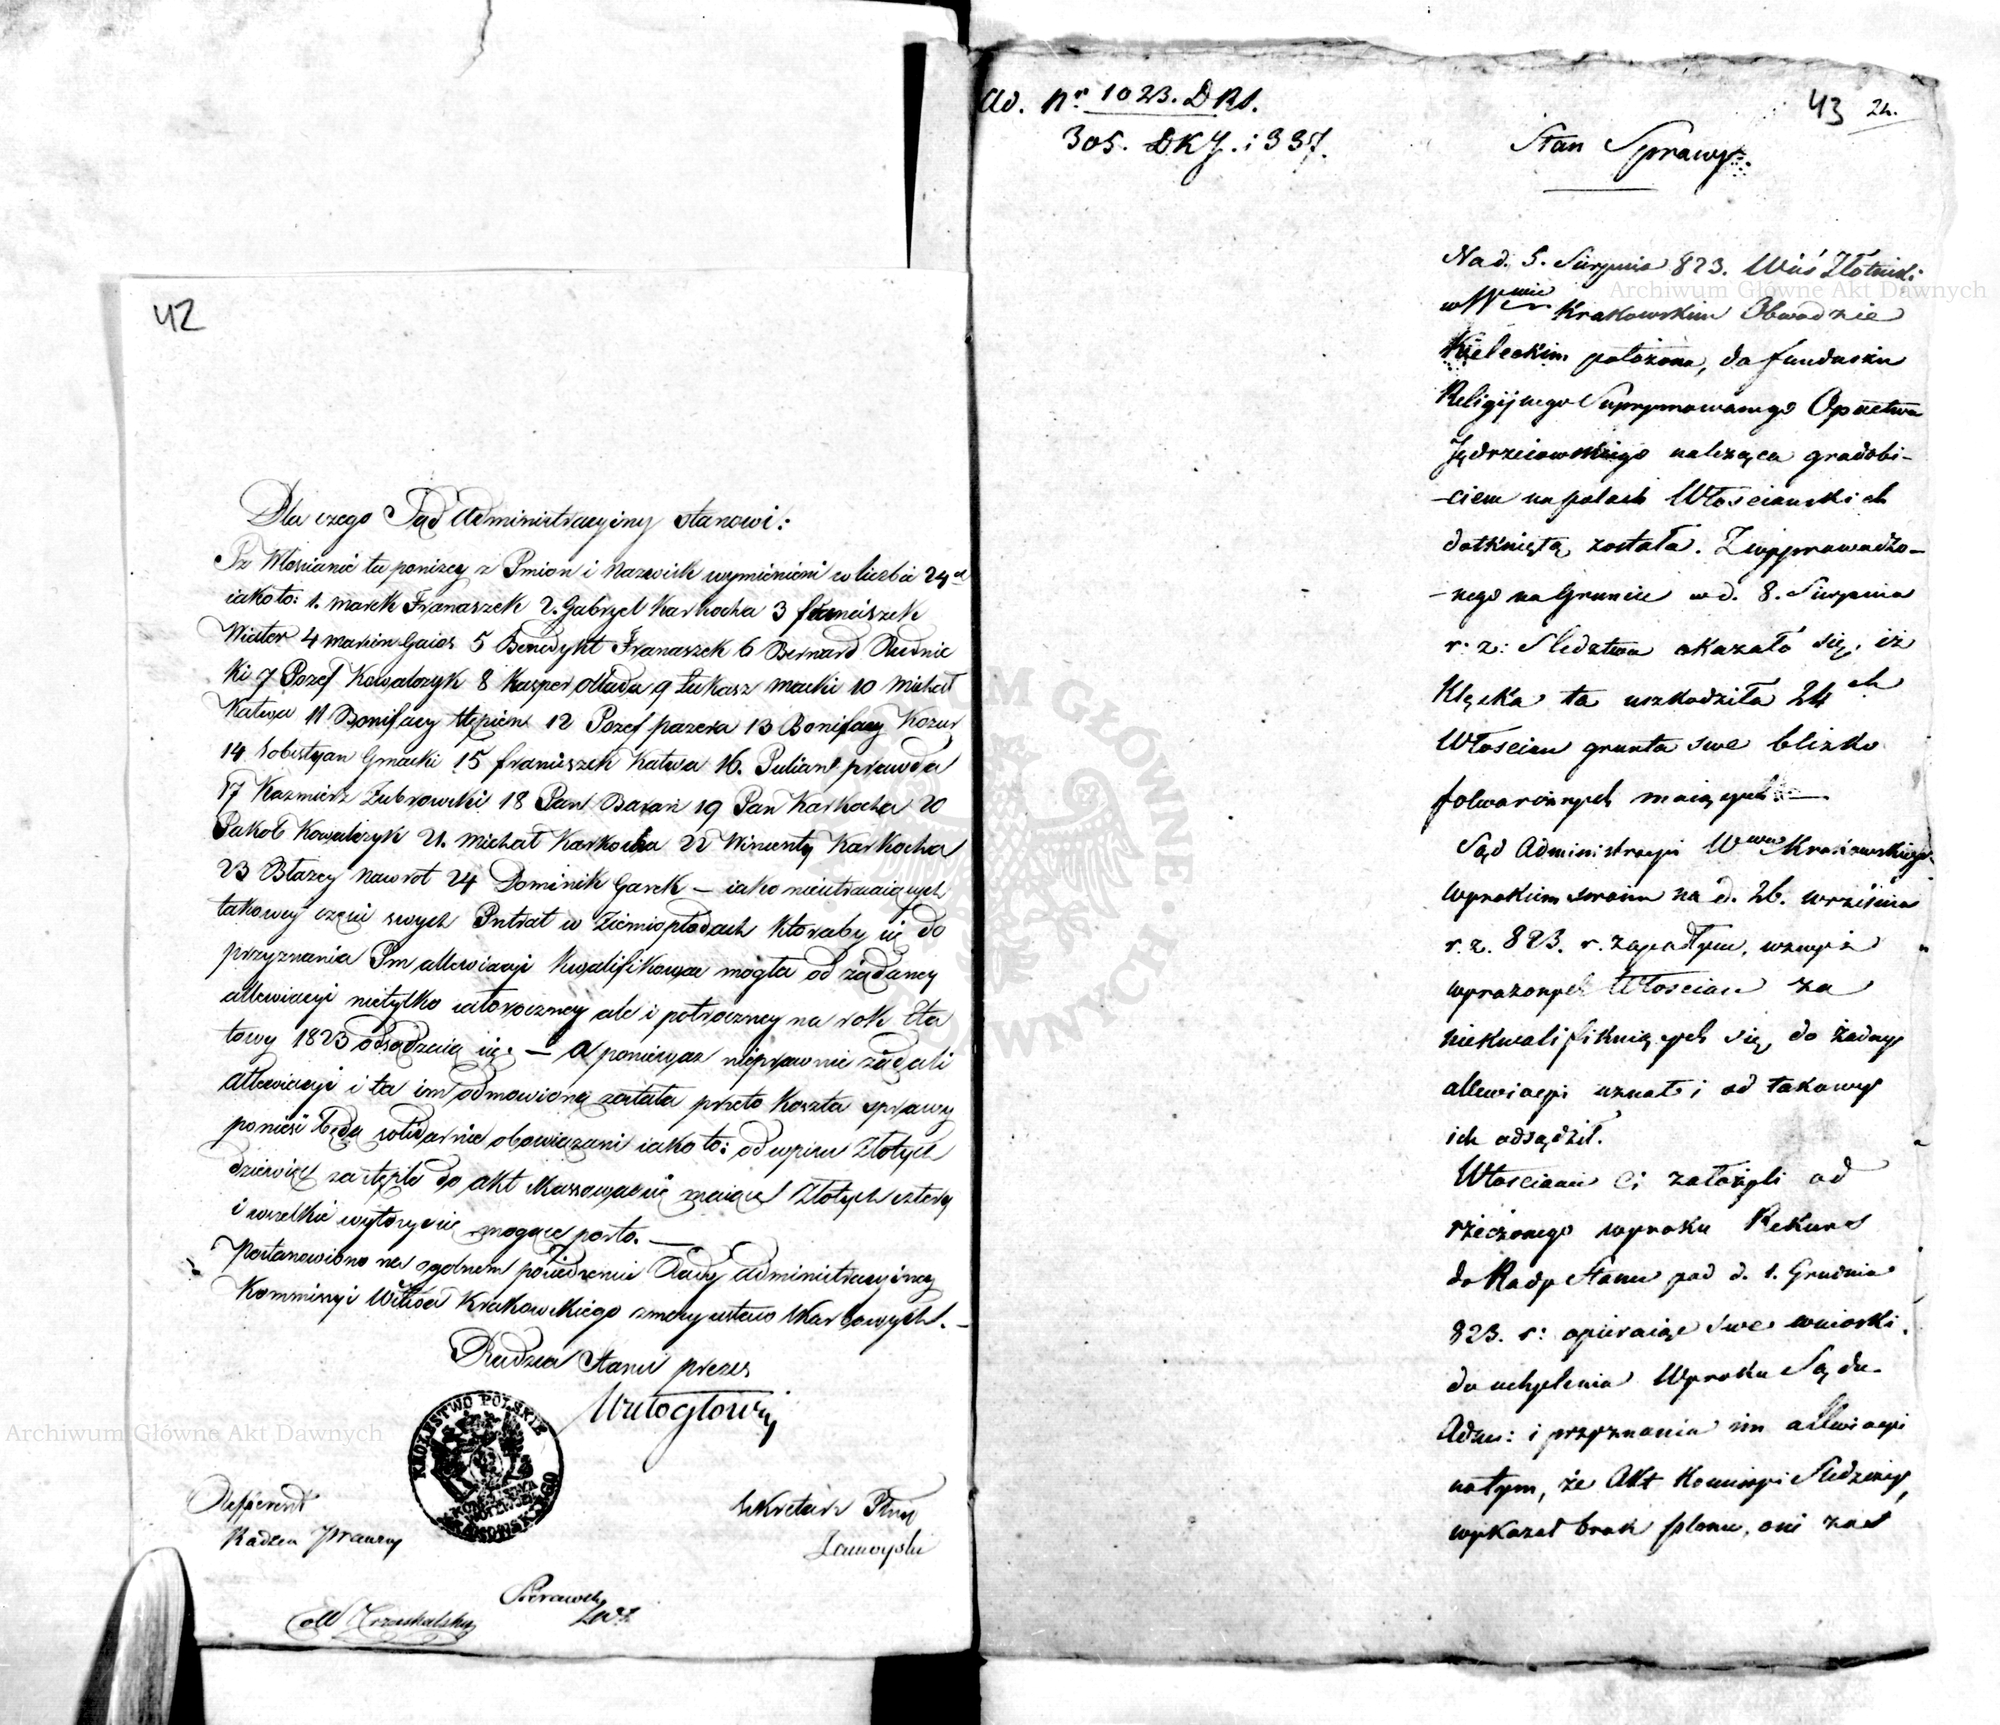 42
Dla czego Sąd Administracyiny stanowi:
Iż Włosianie tu poniżey z Imion i Nazwisk wymienieni w liczbie 24ch
iako to: 1. Marek Franaszek 2. Gabryel Karkocha 3 franciszek
Wiater 4 Marcin Gaios 5 Benedykt Franaszek 6 Bernard Rudnic
ki 7 Jozef Kowalczyk 8 Kasper 9 Łukasz Macki 10 Michał
Katwa 11 Bonifacy Stępien 12 Jozef pazera 13 Bonifacy Kozur
14 Sobestyan Gmacki 15 franciszek Katwa 16. Julian prawda
17 Kazmierz Zubrowski 18 Jan Baran 19 Jan Karkocha 20
Jakob Kowalczyk 21. Michał Karkocha 22 Wincenty Karkocha
23 Błazey Nawrot 24 Dominik Garek – iako nieutracaiących
takowey częsci swych Intrat w Ziemiopłodach ktoraby się do
przyznania Im allewiacyi kwalifikować mogła od żądaney
allewiacyi nietylko całoroczney ale i połroczney na rok Eta
towy 1823 odsądzaią się. – A ponieważ nieprawnie żądali
Allewiacyi i ta im odmowioną została przeto koszta sprawy
poniesć będą solidarnie obowiązani iako to: od wpisu Złotych
dziewięć za stęple do akt kassować się maiące Złotych cztery
i wszelkie wytoczyć się mogące porto. —
Postanowiono na ogolnem posiedzeniu Rady Administracyiney
Kommissyi Wdztwa Krakowskiego
Radzca Stanu prezes
Wielogłowski
KROLESTWO POLSKIE
KOMMISSYA WOIEWODZTWA
KRAKOWSKIEGO
Refferent
Radzca Prawny
Sekretarz Jlny
Zamoyski
Ad. Nr 1023. DRS.
305. DKJ. i 337.
43 24.
Stan Sprawy.
Na d. 5. Sierpnia 823. Wieś Złotniki
w Wwie Krakowskim Obwodzie
Kieleckim położona, do funduszu
Religijnego Supprymowanego Opactwa
Jędrzeiowskiego należąca gradobi-
-ciem na polach Włościańskich
dotkniętą została. Z wyprowadzo-
-nego na Gruncie w d. 8. Sierpnia
r. z: Sledztwa okazało się, iż
Klęska ta uszkodziła 24ch
Włoscian grunta swe blizko
folwarcznych maiących. —
Sąd Administracyi Wwa Krakowskiego
wyrokiem swoim na d. 26. września
r. z. 823. r. zapadłym, wzwyż
wyrażonych Włoscian za
niekwalifikuiących się do żadney
allewiacyi uznał i od takowey
ich odsądził.
Włoscianie Ci założyli od
rzeczonego wyroku Rekurs
do Rady Stanu pod d. 1. Grudnia
823. r: opieraiąc swe wnioski.
do uchylenia Wyroku Sądu-
Adm: i przyznania im allewiacyi
na tym, że Akt Komissyi Sledzczey,
wykazał brak plonu, oni zaś